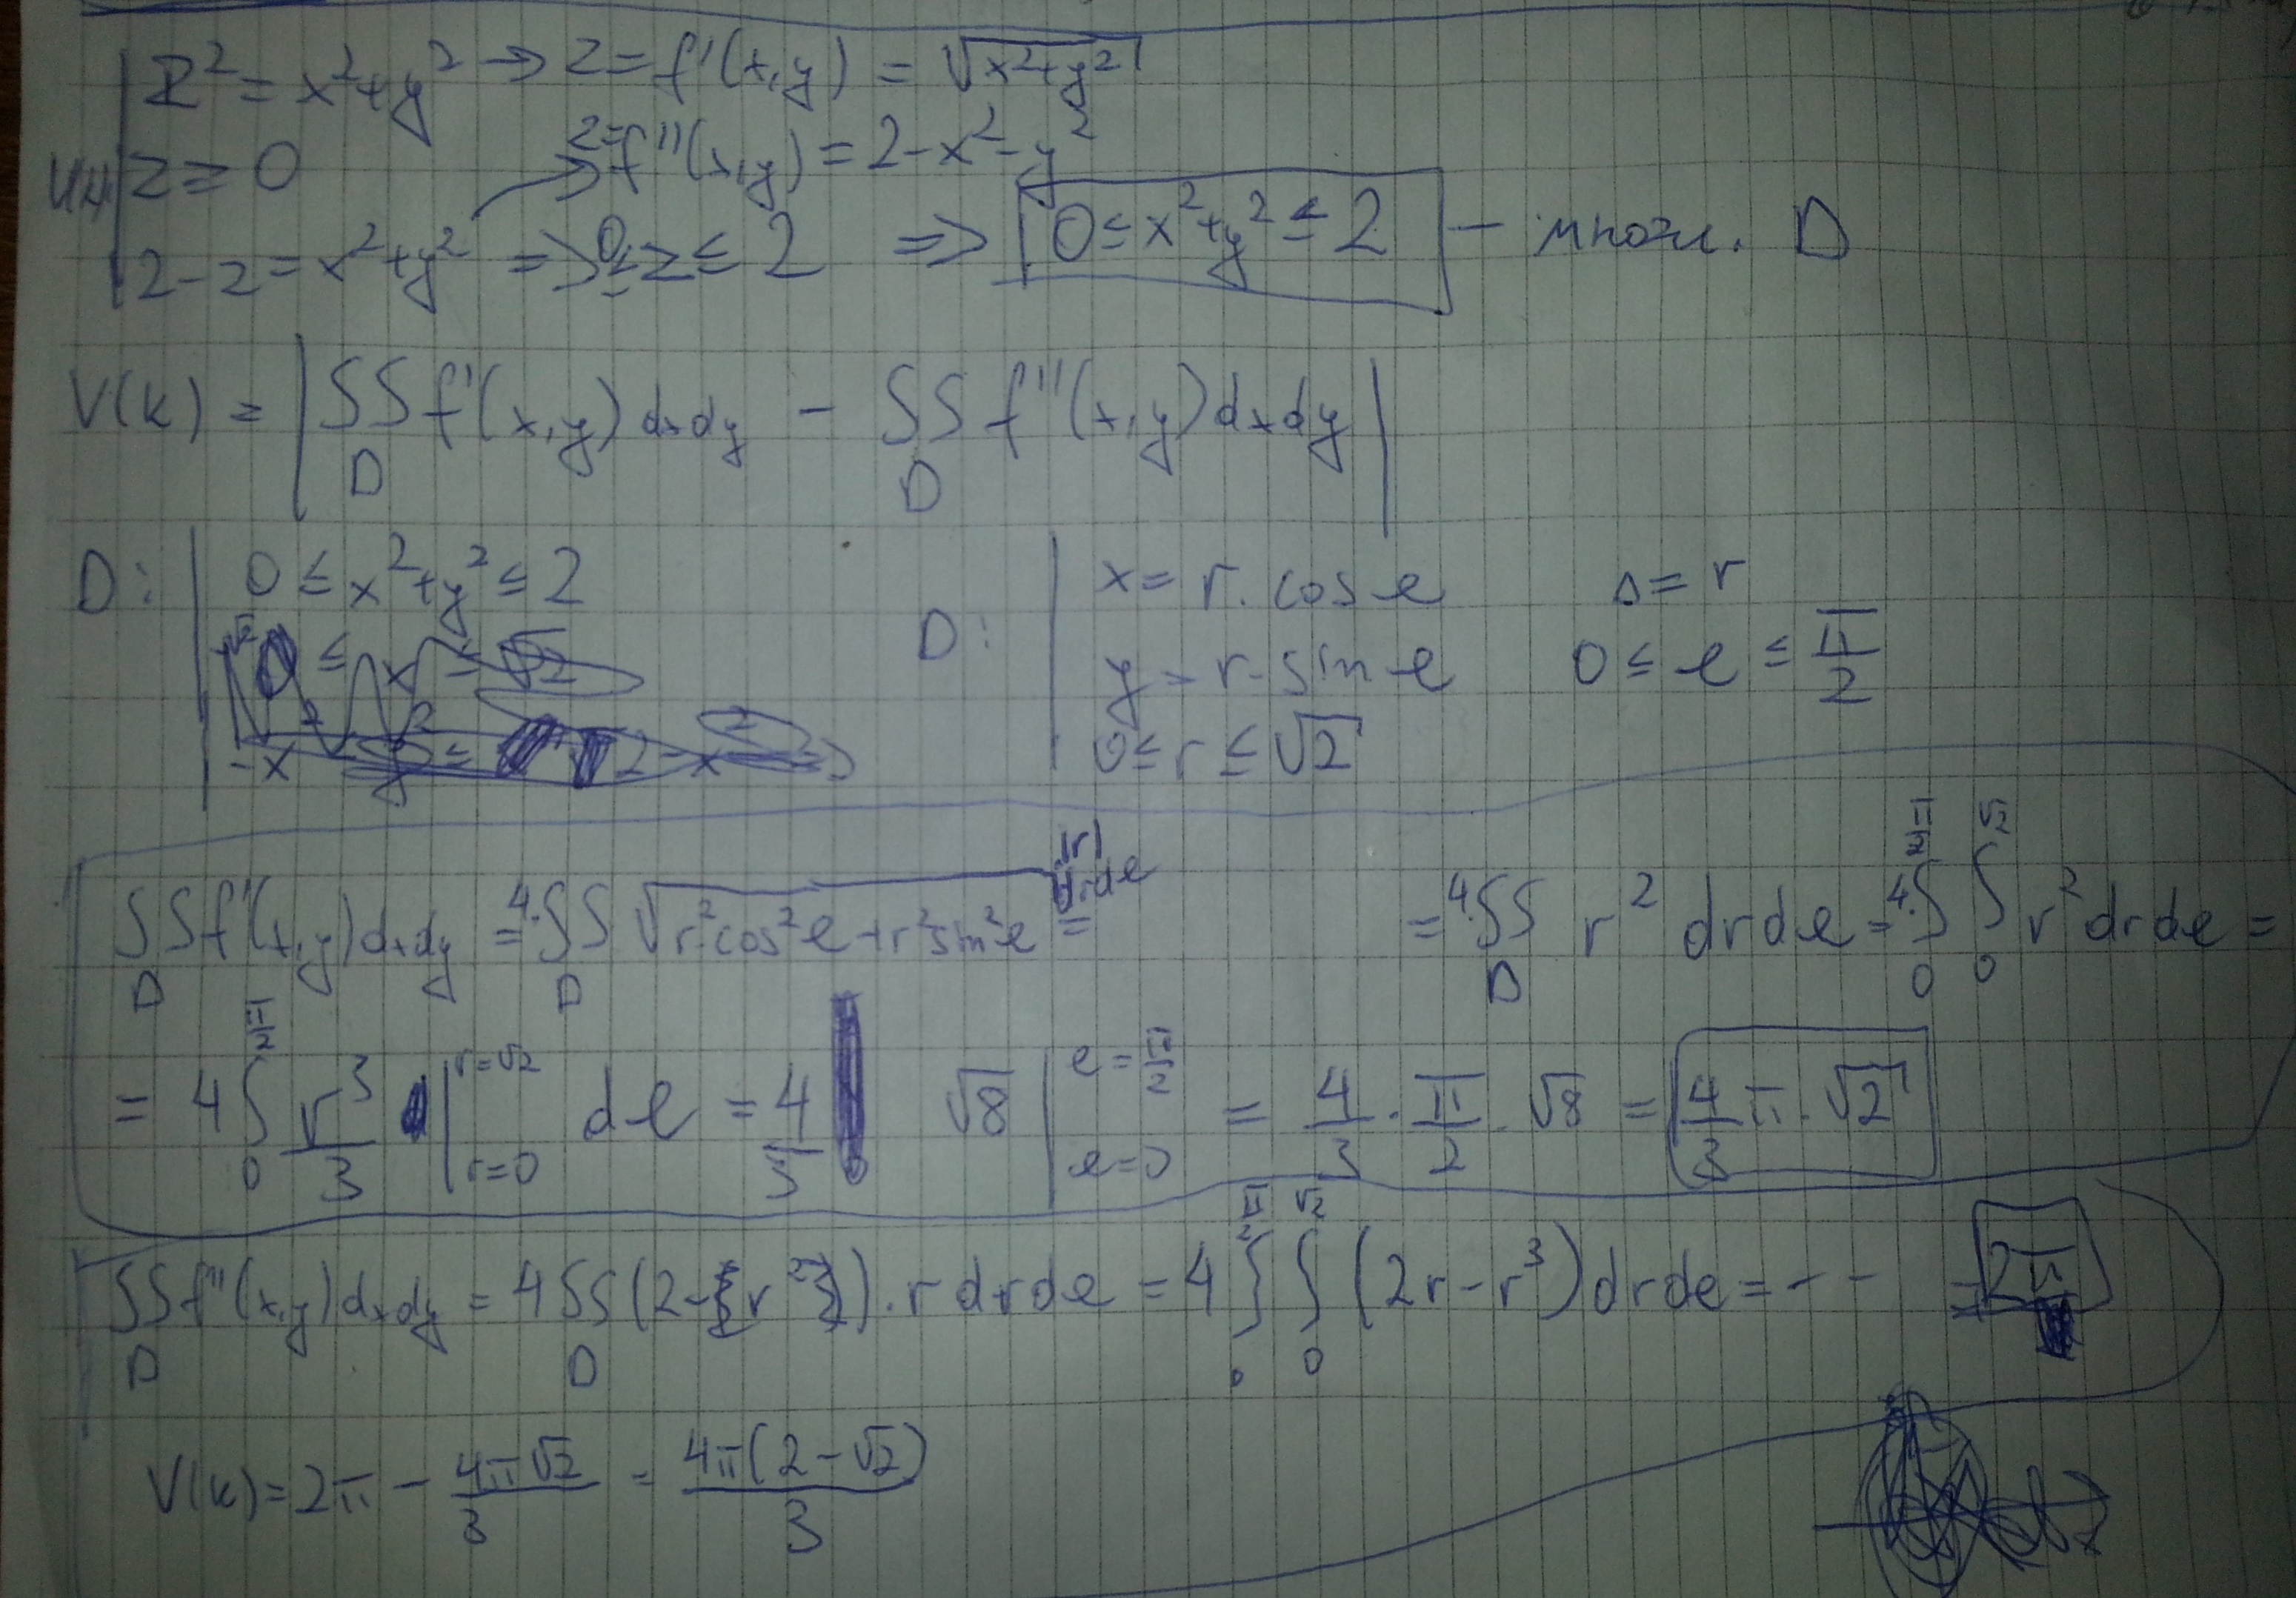 z² = x²+y² → z = f'(x,y) = √(x²+y²)
z = f''(x,y) = 2-x²-y²
z ≥ 0
2-z = x²+y² => 0 ≤ z ≤ 2 => 0 ≤ x²+y² ≤ 2 - множ. D
V(k) = | ∫∫_D f'(x,y) dxdy - ∫∫_D f''(x,y) dxdy |
D: | 0 ≤ x²+y² ≤ 2
D: | x = r. cos φ Δ = r
y = r. sin φ 0 ≤ φ ≤ π/2
0 ≤ r ≤ √2
∫∫_D f'(x,y) dxdy = 4.∫∫_D √(r²cos²φ+r²sin²φ) |r| drdφ = = 4.∫∫_D r² drdφ = 4.∫_0^{π/2} ∫_0^{√2} r² drdφ =
= 4 ∫_0^{π/2} r³/3 |_{r=0}^{r=√2} dφ = 4/3 √8 |_{φ=0}^{φ=π/2} = 4/3 . π/2 . √8 = 4/3 π . √2
∫∫_D f''(x,y) dxdy = 4 ∫∫_D (2-{r²}) . r drdφ = 4 ∫_0^{π/2} ∫_0^{√2} (2r-r³) drdφ = -- = 2π
V(k) = 2π - 4π√2/3 = 4π(2-√2)/3